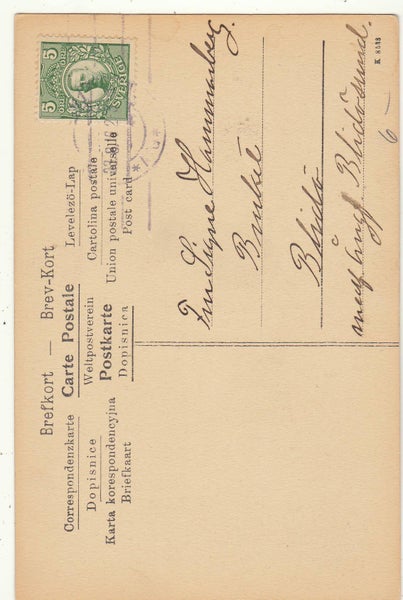 Brefkort — Brev-Kort
Correspondenzkarte Carte Postale Levelező-Lap
Dopisnice Weltpostverein Cartolina postale
Karta korespondencyjna Postkarte Union postale universelle
Briefkaart Dopisnica Post card
5 SVERIGE 5
K 8448
Signe Hammarberg.
Blidö
med ångf. Blidösund.
6 -